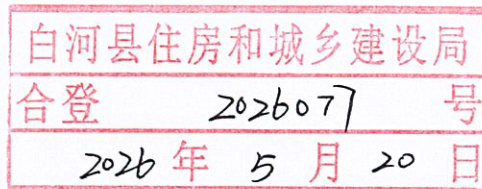 白河县住房和城乡建设局
合登 2026077 号
2026 年 5 月 20 日